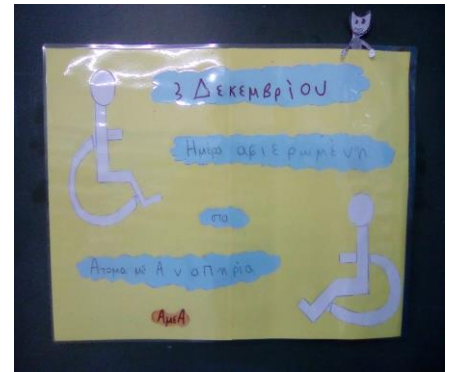 3 Δεκεμβρίου
Ημέρα αφιερωμένη
στα
Άτομα με Αναπηρία
ΑμεΑ